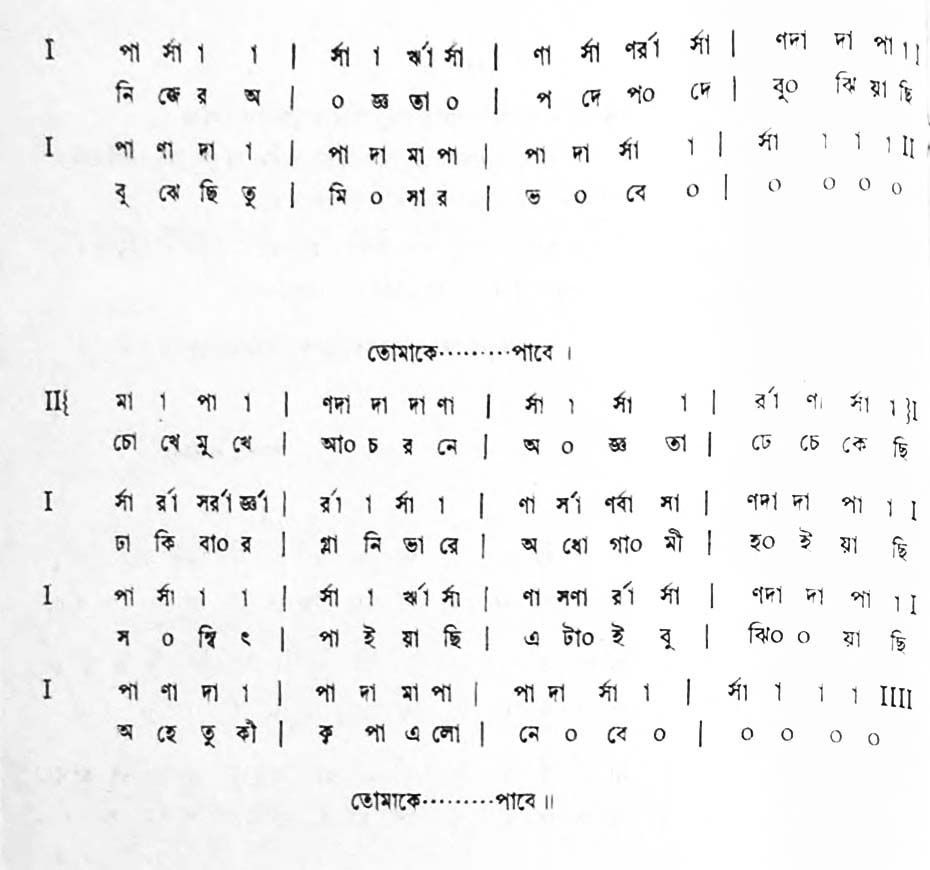 I পা র্সা ১ ১ | র্সা ১ র্ঋা র্সা | ণা র্সা ণর্রা র্সা | ণদা দা পা ১ I
নি জে র অ | ০ জ্ঞ তা ০ | প দে প০ দে | বু০ ঝি য়া ছি
I পা ণা দা ১ | পা দা মা পা | পা দা র্সা ১ | র্সা ১ ১ ১ II
বু ঝে ছি তু | মি ০ সা র | ভ ০ বে ০ | ০ ০ ০ ০
তোমাকে·········পাবে ।
II{ মা ১ পা ১ | ণদা দা দা ণা | র্সা ১ র্সা ১ | র্রা ণা র্সা ১ }I
চো খে মু খে | আ০ চ র নে | অ ০ জ্ঞ তা | ঢে চে কে ছি
I র্সা র্রা সর্রা র্জ্ঞা | র্রা ১ র্সা ১ | ণা র্সা ণর্বা সা | ণদা দা পা ১ I
ঢা কি বা০ র | গ্লা নি ভা রে | অ ধো গা০ মী | হ০ ই য়া ছি
I পা র্সা ১ ১ | র্সা ১ র্ঋা র্সা | ণা সণা র্রা র্সা | ণদা দা পা ১ I
স ০ ম্বি ৎ | পা ই য়া ছি | এ টা০ ই বু | ঝি০ ০ য়া ছি
I পা ণা দা ১ | পা দা মা পা | পা দা র্সা ১ | র্সা ১ ১ ১ IIII
অ হে তু কী | কৃ পা এ লো | নে ০ বে ০ | ০ ০ ০ ০
তোমাকে·········পাবে ॥